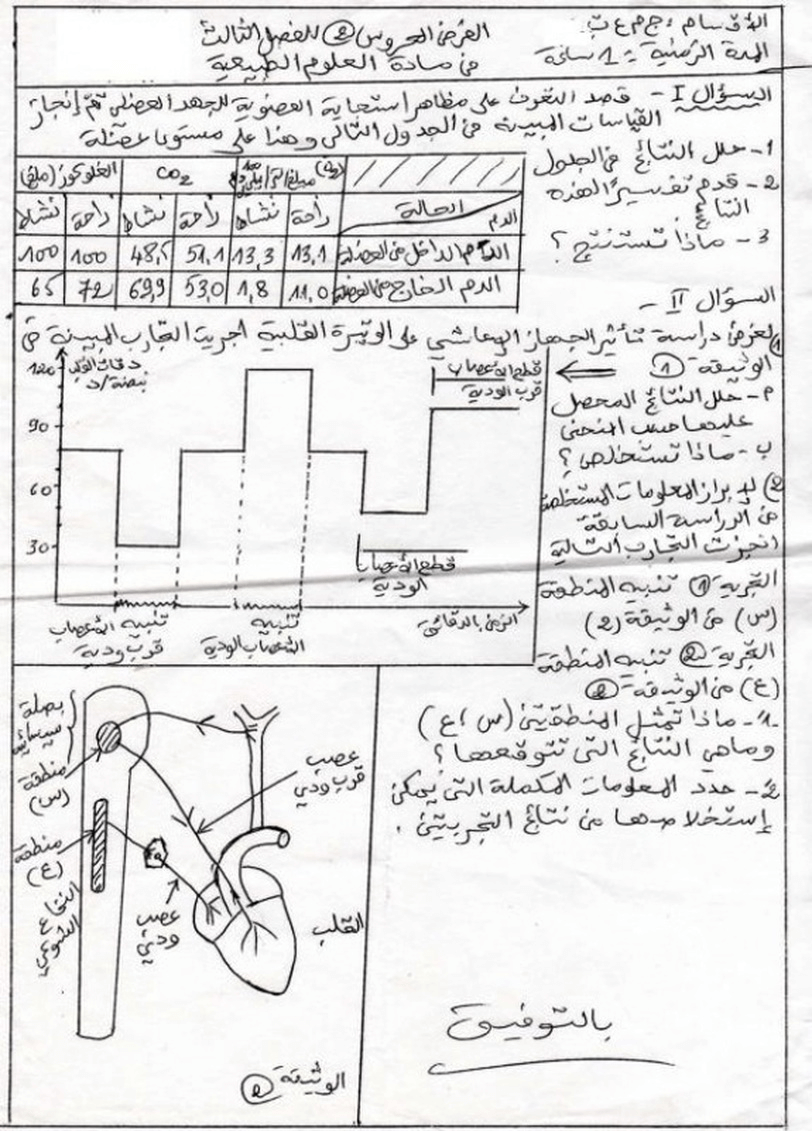 الأقسام : ج م ع ت
المدة الزمنية : 1 ساعة
الفرض المحروس ② للفصل الثالث
في مادة العلوم الطبيعية
السؤال I - قصد التعرف على مظاهر استجابة العضوية للجهد العضلي تم إنجاز
القياسات المبينة في الجدول التالي وهذا على مستوى عضلة
1- حلل النتائج في الجدول
2- قدم تفسيرا لهذه
النتائج
3- ماذا تستنتج؟
الغلوكوز (ملغ)
CO2
الحالة
الدم
راحة نشاط راحة نشاط راحة نشاط
الدم الداخل في العضلة 13,1 13,3 51,1 48,5 100 100
الدم الخارج من العضلة 11,0 1,8 53,0 69,9 72 65
السؤال II -
① لغرض دراسة تأثير الجهاز الإعاشي على الوتيرة القلبية أجريت التجارب المبينة في
الوثيقة ①
م- حلل النتائج المحصل
عليها حسب المنحنى
ب- ماذا تستخلص؟
② لإبراز المعلومات المستخلصة
من الدراسة السابقة
أنجزت التجارب التالية
التجربة ① تنبيه المنطقة
(س) من الوثيقة (2)
التجربة ② تنبيه المنطقة
(ع) من الوثيقة ②
1- ماذا تمثل المنطقتين (س، ع)
وماهي النتائج التي تتوقعها؟
2- حدد المعلومات المكملة التي يمكن
إستخلاصها من نتائج التجربتين .
دقات القلب
نبضة/د
120
90
60
30
قطع الأعصاب
قرب الودية
قطع الأعصاب
الودية
تنبيه الأعصاب
قرب ودية
تنبيه
الأعصاب الودية
الزمن بالدقائق
بصلة
سيسائية
منطقة
(س)
منطقة
(ع)
النخاع
الشوكي
عصب
قرب ودي
عصب
ودي
القلب
الوثيقة ②
بالتوفيق